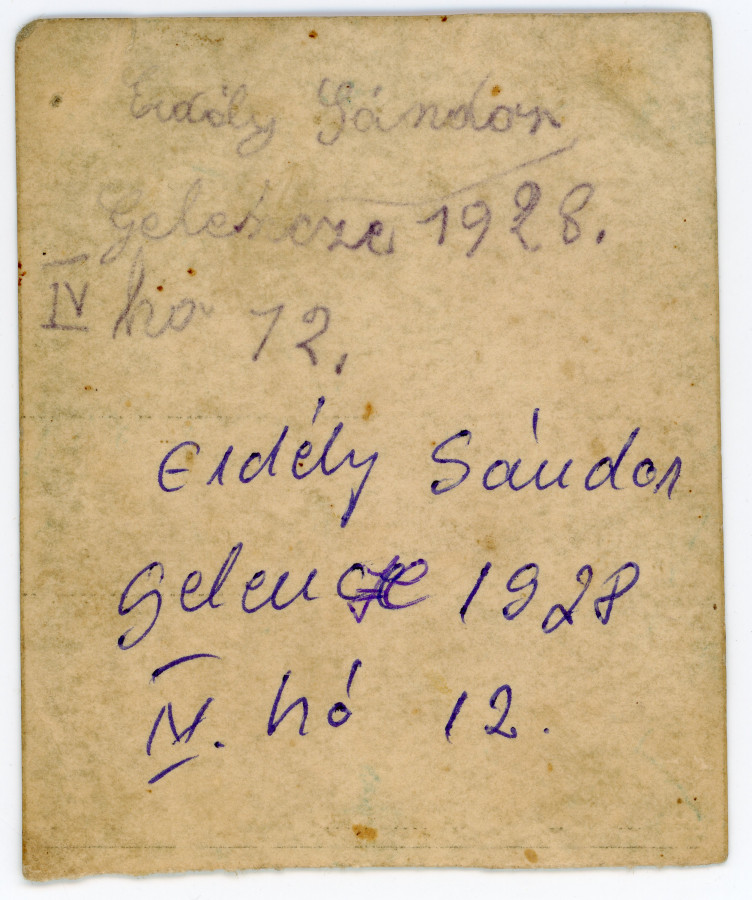 Erdély Sándor
Gelencze 1928.
IV hó 12.
Erdély Sándor
Gelence 1928
IV. hó 12.